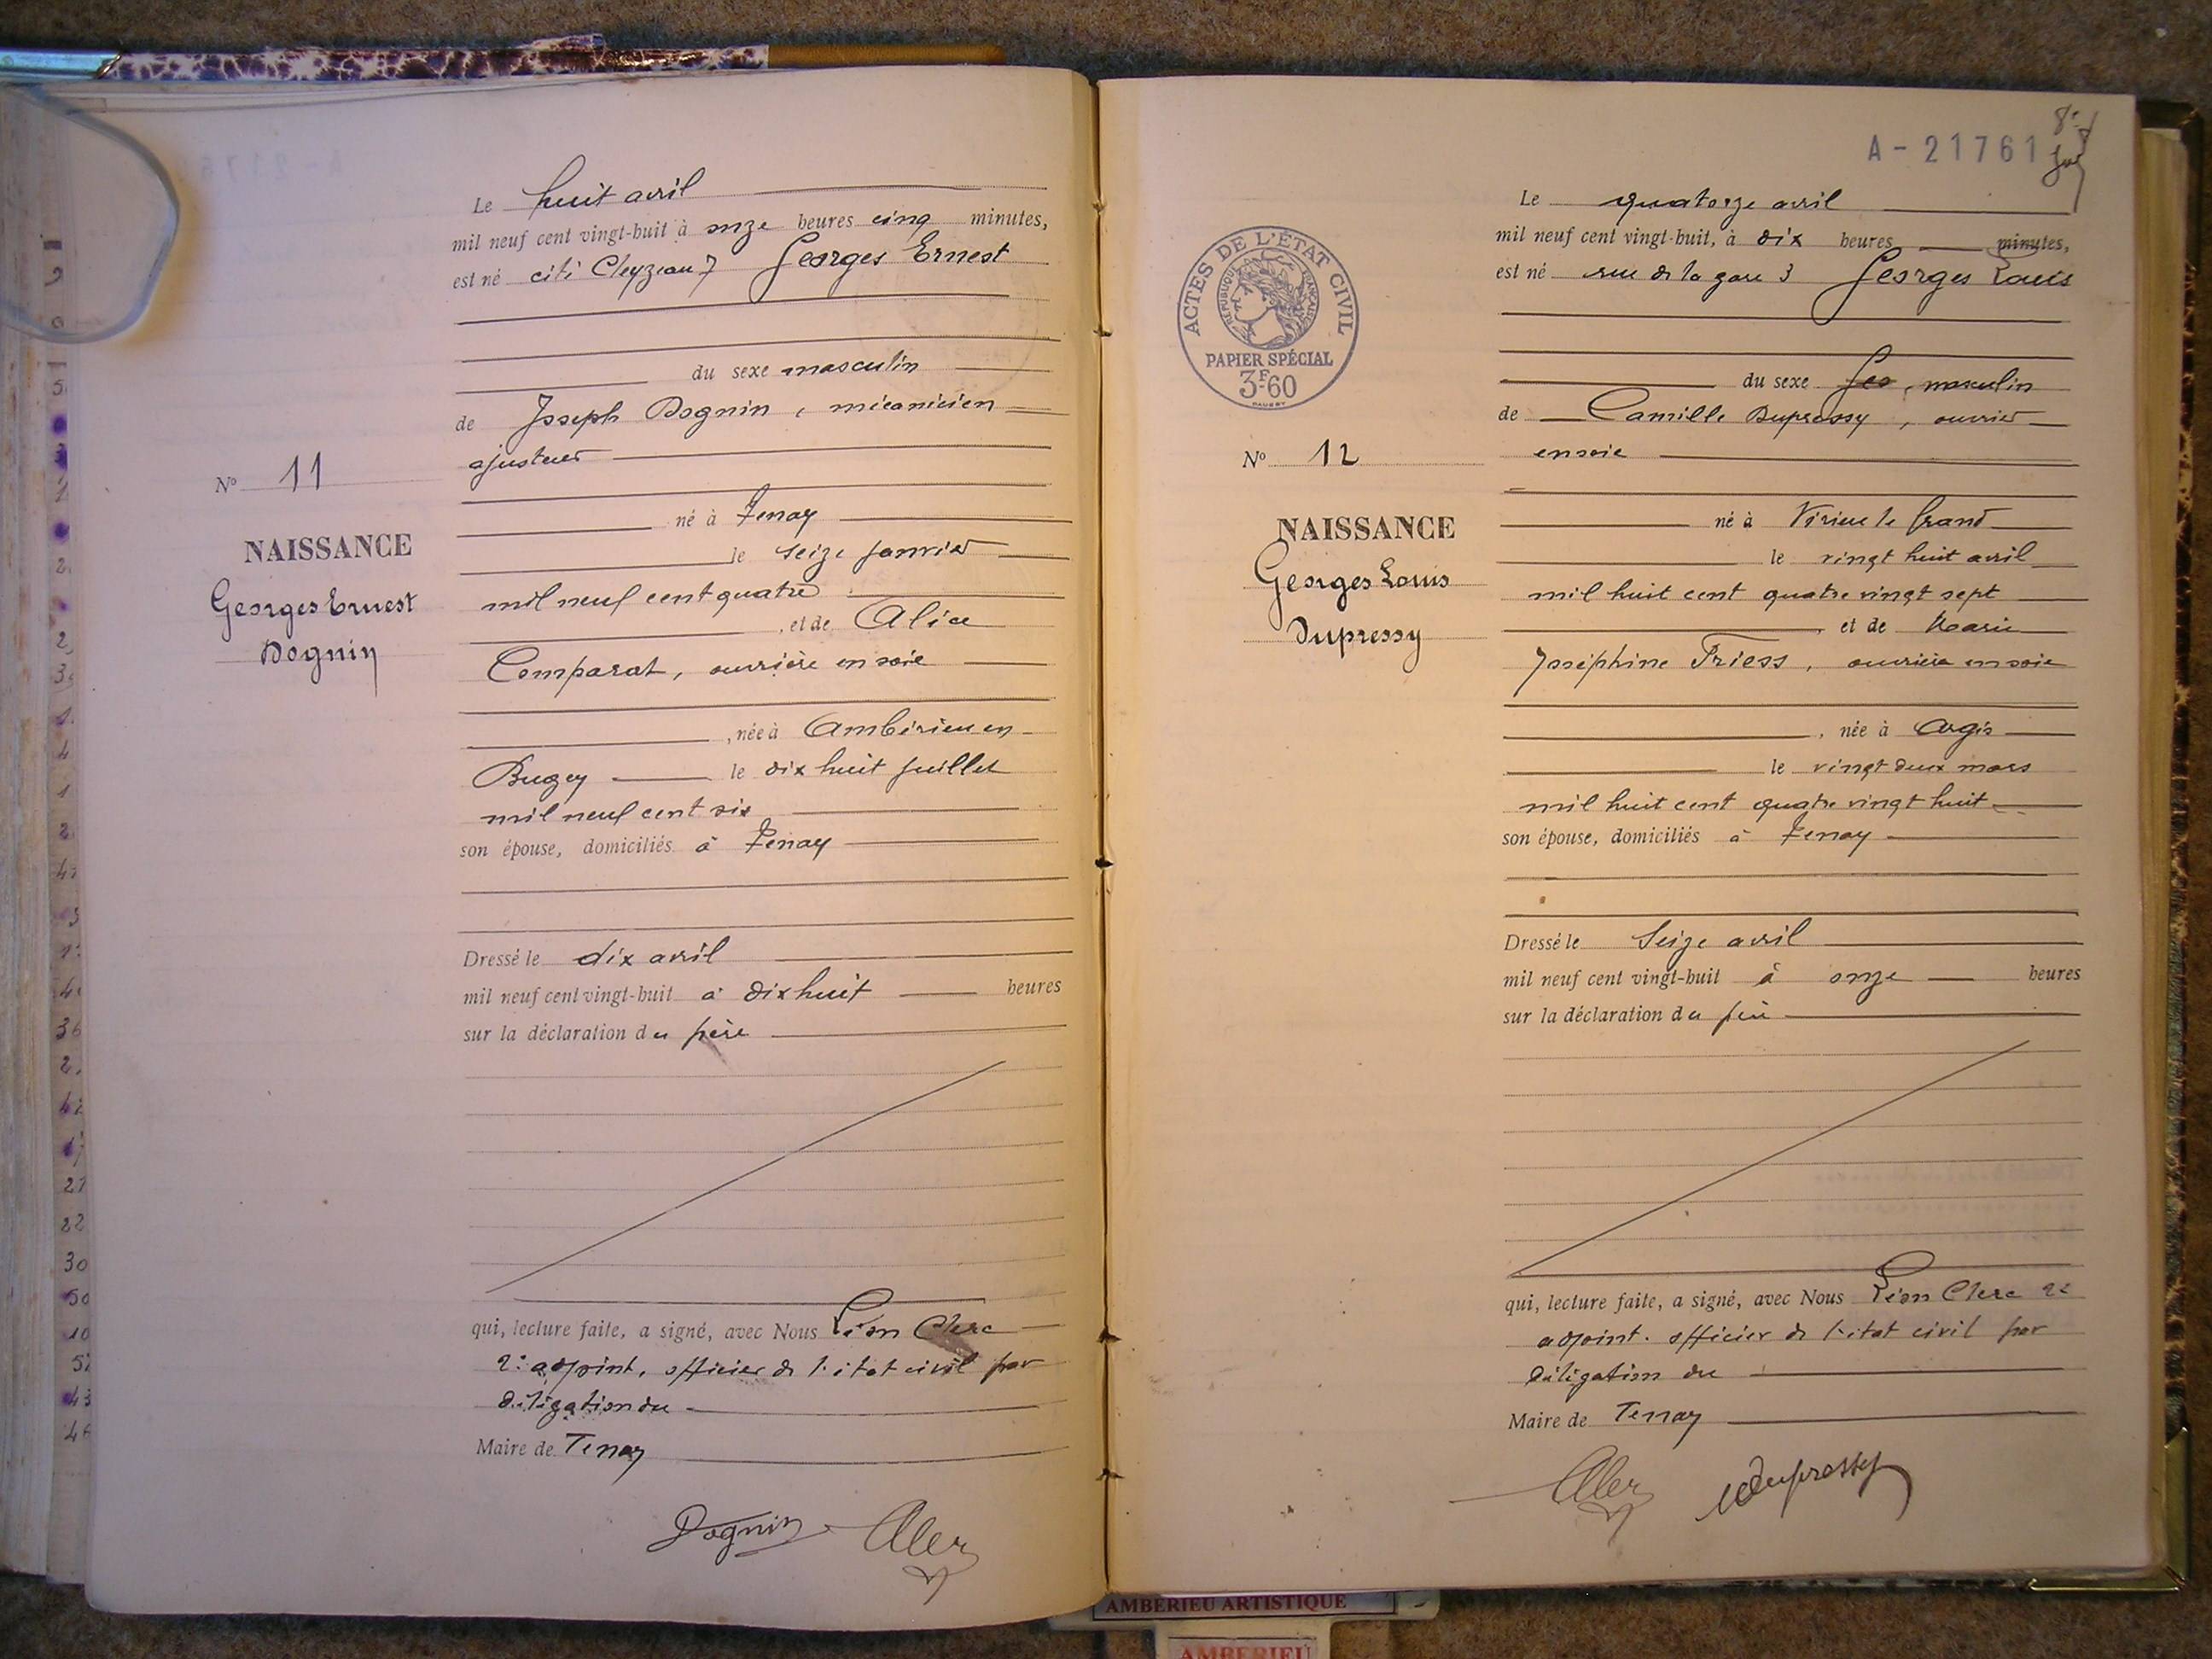 Le huit avril
mil neuf cent vingt-huit à onze heures cinq minutes,
est né cité Cleyzieau 7 Georges Ernest
du sexe masculin
de Joseph Dognin, mécanicien
ajusteur
né à Tenay
le seize janvier
mil neuf cent quatre
, et de Alice
Comparat, ouvrière en soie
, née à Ambérieu en
Bugey le dix huit juillet
mil neuf cent six
son épouse, domiciliés à Tenay
Dressé le dix avril
mil neuf cent vingt-huit à dix huit heures
sur la déclaration du père
qui, lecture faite, a signé, avec Nous Léon Clerc
2e adjoint, officier de l'état civil par
délégation du
Maire de Tenay
Dognin
No 11
NAISSANCE
Georges Ernest
Dognin
A-21761
ACTES DE L'ÉTAT CIVIL
RÉPUBLIQUE FRANÇAISE
PAPIER SPÉCIAL
3F-60
No 12
NAISSANCE
Georges Louis
Dupressy
Le quatorze avril
mil neuf cent vingt-huit, à dix heures minutes,
est né rue de la gare 3 Georges Louis
du sexe Geo, masculin
de Camille Dupressy, ouvrier
en soie
né à Virieu le Grand
le vingt huit avril
mil huit cent quatre vingt sept
, et de Marie
Joséphine Friess, ouvrière en soie
, née à Argis
le vingt deux mars
mil huit cent quatre vingt huit
son épouse, domiciliés à Tenay
Dressé le Seize avril
mil neuf cent vingt-huit à onze heures
sur la déclaration du père
qui, lecture faite, a signé, avec Nous Léon Clerc 2e
adjoint. officier de l'état civil par
délégation du
Maire de Tenay
Dupressy
AMBÉRIEU ARTISTIQUE
AMBÉRIEU